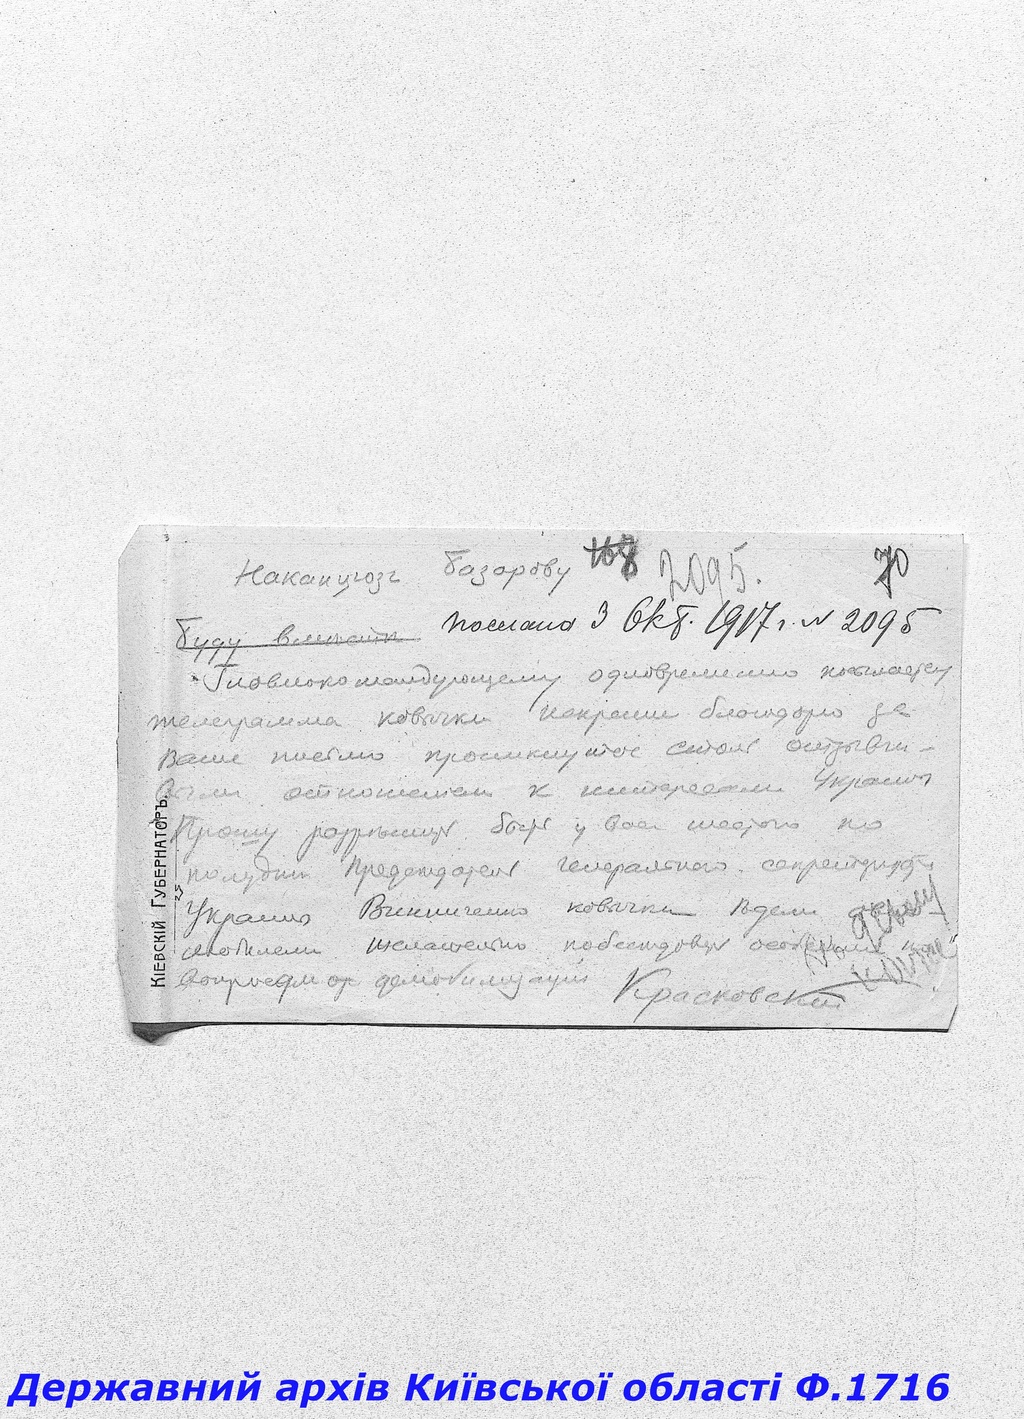 Наканцюзг Базарову 108 2095. 70
Буду послана 3 Окт. 1917 г. N 2095
Главнокомандующему одновременно посылается
телеграмма кавычки искренне благодарю за
Ваше письмо проникнутое столь отзывчи-
вым отношением к интересам Украины
Прошу разрешить быть у Вас шестого по
полудни Председателю генерального секретариата
Украины Винниченко кавычки
желательно побеседовать особенно по
вопросам от демобилизации Красковский
КІЕВСКІЙ ГУБЕРНАТОРЪ.
Державний архів Київської області Ф.1716